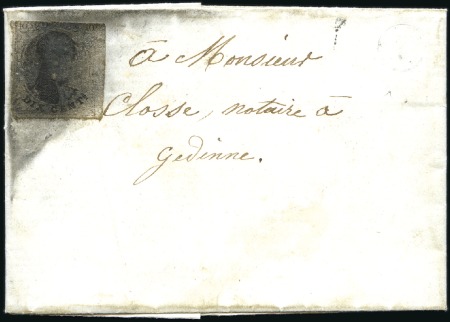 à Monsieur
Closse, notaire à
Gedinne.